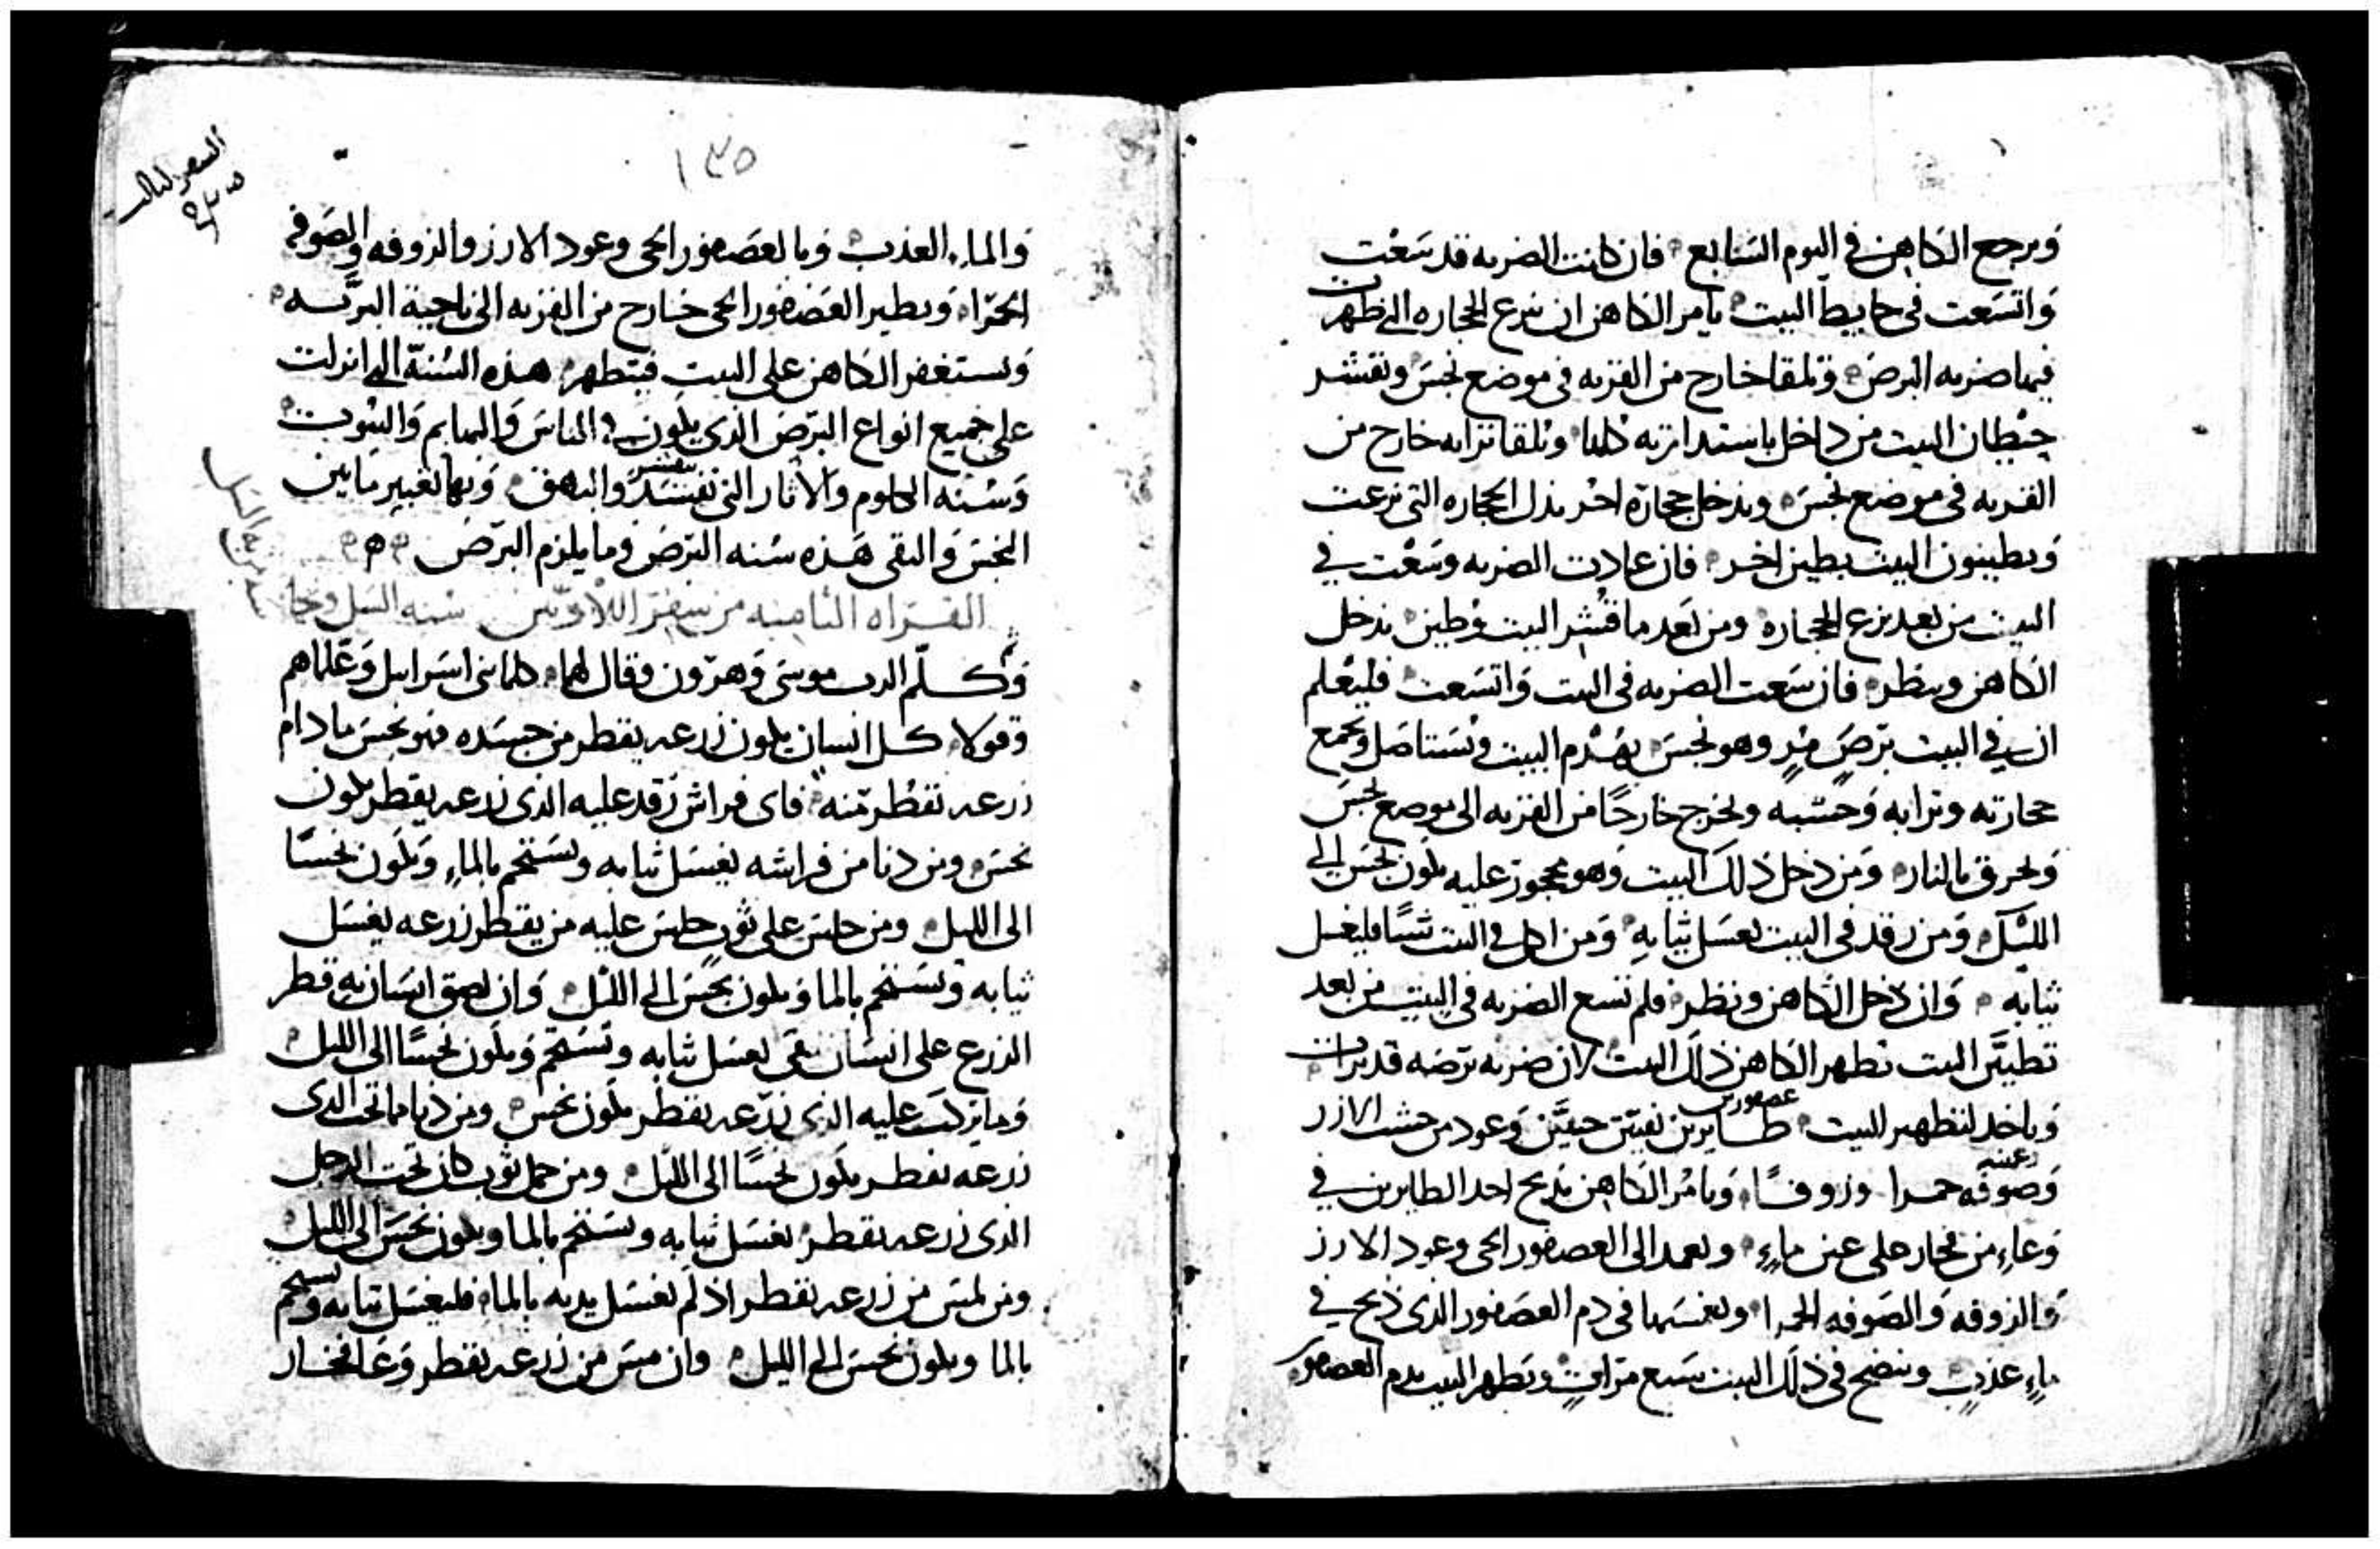 ويرجع الكاهن في اليوم السابع فان كانت الضربه قد سعت
واتسعت في حايط البيت يامر الكاهن ان ينزع الحجاره التي ظهرت
فيها ضربه البرص وتلقا خارج من القريه في موضع نجس وتقشر
حيطان البيت من داخل باستدارته كلها وتلقا ترابه خارج من
القريه في موضع نجس ويدخل حجارة اخر بدل الحجاره التي نزعت
ويطينون البيت بطين اخر فان عادت الضربه وسعت في
البيت من بعد نزع الحجاره ومن بعد ما قشر البيت وطين يدخل
الكاهن وينظر فان سعت الضربه في البيت واتسعت فليعلم
ان في البيت برص مر وهو نجس يهدم البيت وتستاصل ويجمع
حجارته وترابه وخشبه ويخرج خارجًا من القريه الى موضع نجس
ويحرق بالنار ومن دخل ذلك البيت وهو محجوز عليه يكون نجس الى
الليل ومن رقد في البيت يغسل ثيابه ومن اكل في البيت شيئًا فليغسل
ثيابه وان دخل الكاهن ونظر فلم تسع الضربه في البيت من بعد
تطيين البيت يطهر الكاهن ذلك البيت لان ضربه برصه قد برات
وياخد لتطهير البيت طايرين نقيين حيين وعود من خشب الارز
عصفورين
وصوفه حمرا وزوفًا ويامر الكاهن بذبح احد الطايرين في
وعاءٍ من فخار على عين ماءٍ ويعمد الى العصفور الحي وعود الارز
والزوفه والصوفه الحمرا ويغمسها في دم العصفور الذي ذبح في
ماءٍ عذبٍ وينضح في ذلك البيت سبع مراتٍ ويطهر البيت بدم العصفور
السفر الثالث
١٣٥
والماء العذب وبالعصفور الحي وعود الارز والزوفه والصوفه
الحمراء ويطير العصفور الحي خارج من القريه الى ناحية البريه
ويستغفر الكاهن على البيت فيتطهر هذه السُنة التي انزلت
على جميع انواع البرص الذي يكون في الناس والبهايم والبيوت
وسُنه الكلوم والاثار التي تفسد والبهق وبها تغيير ما بين
النجس والنقي هذه سُنه البرص وما يلزم البرص
القراه الثامنه من سفر اللاويين سُنه السل ونجا
وكلّم الرب موسى وهرون وقال لهما كلما بني اسرايل وعلماهم
وقولا كل انسان يكون زرعه يقطر من جسده فهو نجس ما دام
زرعه تقطر منه فاى فراش رقد عليه الذى زرعه يقطر يكون
نجس ومن دنا من فراشه يغسل ثيابه ويستحم بالماءِ ويكون نجسًا
الى الليل ومن جلس على ثوب جلس عليه من يقطر زرعه يغسل
ثيابه ويستحم بالما ويكون نجس الى الليل وان لصق انسان به قطر
الزرع على انسان نقى يغسل ثيابه وتستحم ويكون نجسًا الى الليل
وما يركب عليه الذي زرعه يقطر يكون نجس ومن دنا مما تحت الذى
زرعه يقطر يكون نجسًا الى الليل ومن حمل ثوب كان تحت الرجل
الذى زرعه يقطر يغسل ثيابه ويستحم بالما ويكون نجس الى الليل
ومن لمس من زرعه يقطر اذ لم يغسل يديه بالماء فليغسل ثيابه ويستحم
بالما ويكون نجس الى الليل وان مس من زرعه يقطر وعا فخار